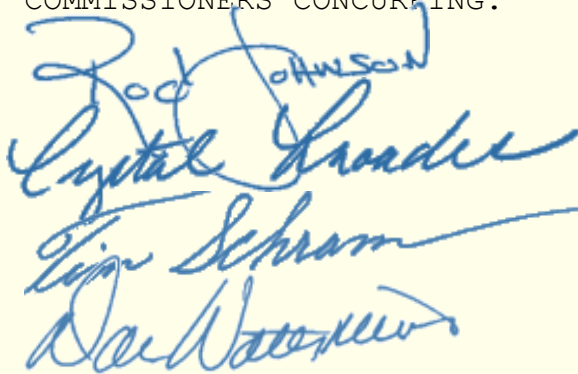 COMMISSIONERS CONCURRING:
Rod Johnson
Crystal Rhoades
Tim Schram